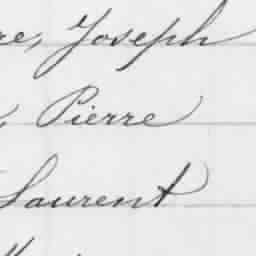 re, Joseph
, Pierre
Laurent